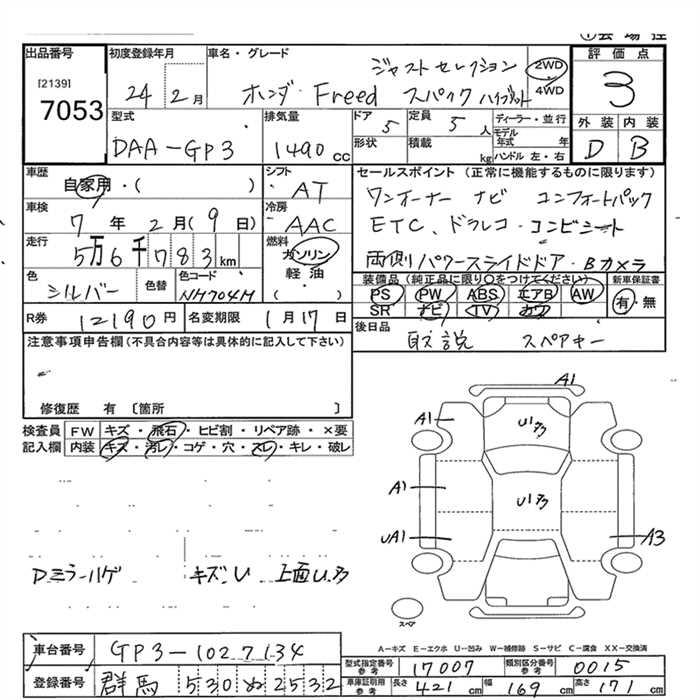 出品番号 [2139] 7053
初度登録年月 24 2月
車名・グレード ジャストセレクション
ホンダ Freed スパイク ハイブリット
2WD・4WD
評価点 3
外装 内装
D B
型式 DAA-GP3
排気量 1490 cc
ドア 5
形状
定員 5 人
積載 kg
ディーラー・並行
モデル年式 年
ハンドル 左・右
車歴 自家用・( )
シフト AT
車検 7年2月(9日)
冷房 AAC
走行 5万6千783km
燃料 ガソリン 軽油 ・( )
色 シルバー
色替
色コード NH704M
セールスポイント (正常に機能するものに限ります)
ワンオーナー ナビ コンフォートパック
ETC、ドラレコ・コンビシート
両側パワースライドドア・Bカメラ
装備品(純正品に限り○をつけてください)
PS PW ABS エアB AW
SR ナビ TV カワ
新車保証書 有・無
R券 12190円
名変期限 1月17日
後日品 取説 スペアキー
注意事項申告欄(不具合内容等は具体的に記入して下さい)
修復歴 有〔箇所 〕
検査員記入欄
FW キズ・飛石・ヒビ割・リペア跡・×要
内装 キズ・汚レ・コゲ・穴・スレ・キレ・破レ
Dミラーハゲ キズ・U 上面U.多
A1
A1 U1多
A1 U1多
UA1 A3
スペア
A-キズ E-エクボ U-凹み W-補修跡 S-サビ C-腐食 XX-交換済
車台番号 GP3-1027134
登録番号 群馬 530 ぬ 2532
型式指定番号 参考 17007
類別区分番号 参考 0015
車庫証明用 参考 長さ 421cm 幅 169cm 高さ 171cm